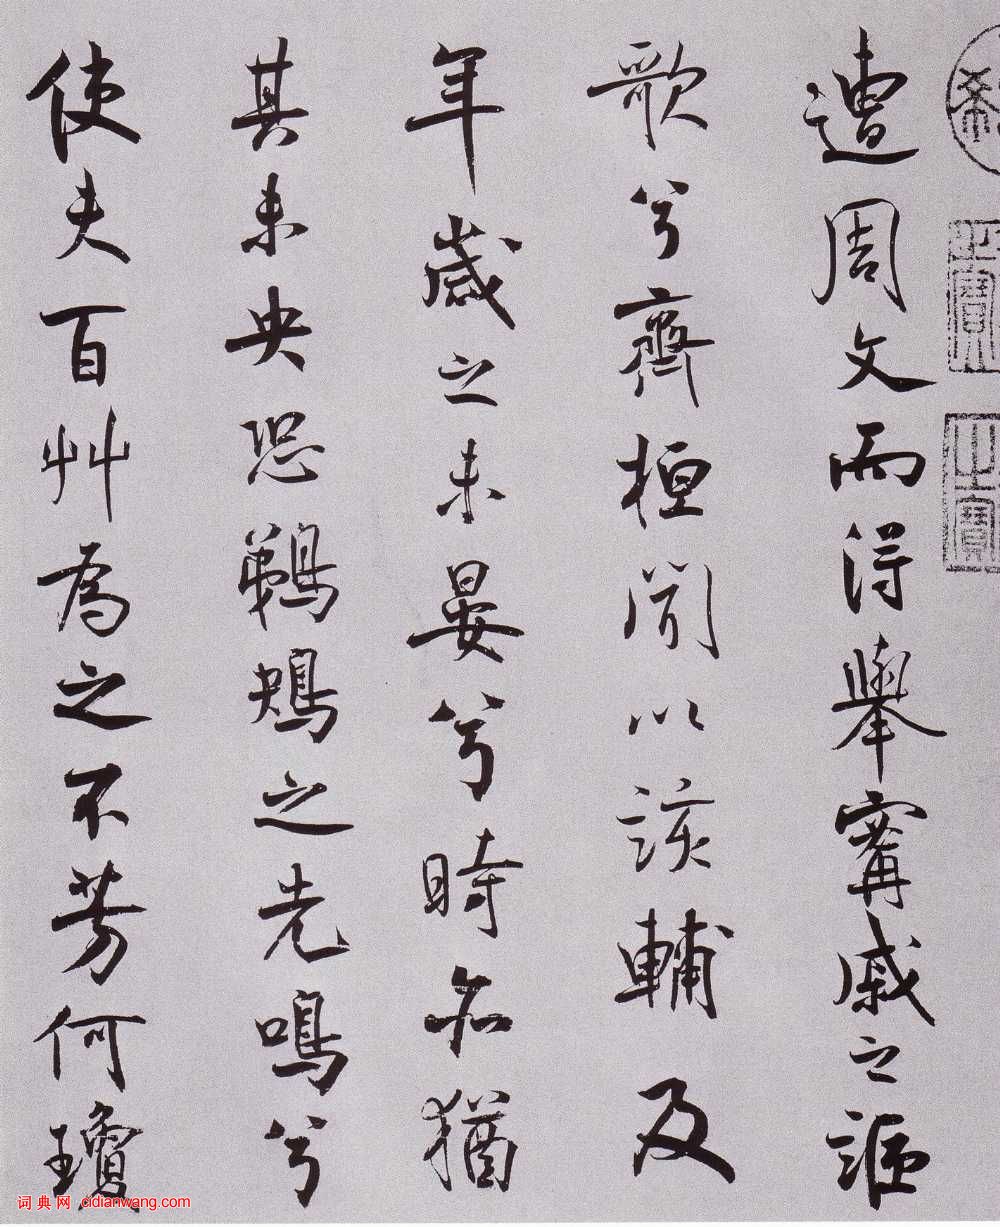 遭周文而得舉寗戚之謳
歌兮齊桓聞以該輔及
年歲之未晏兮時亦猶
其未央恐鵜鴃之先鳴兮
使夫百艸為之不芳何瓊
词典网 cidianwang.com